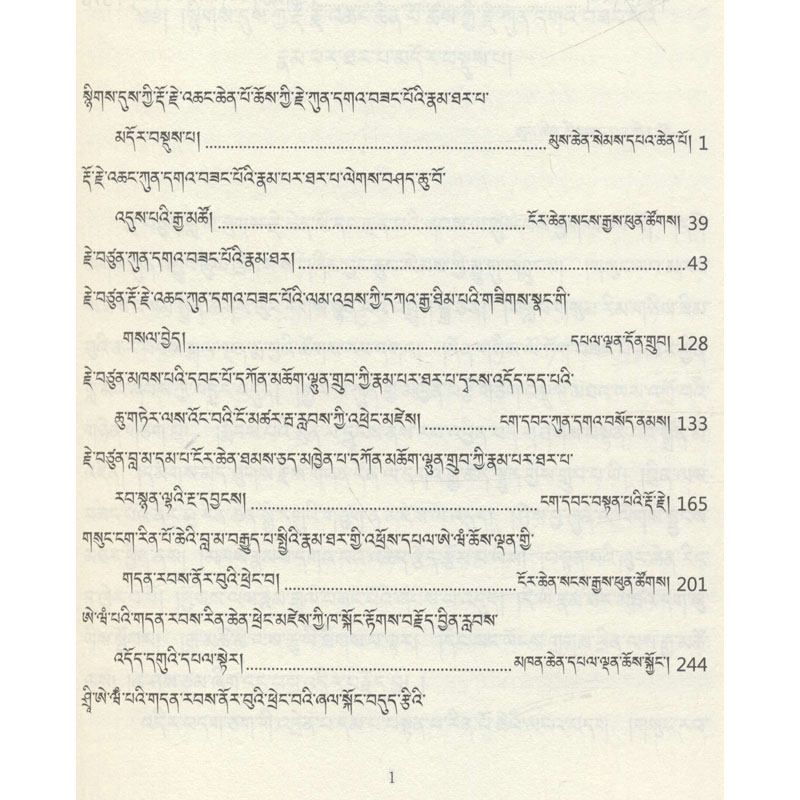 སྙིགས་དུས་ཀྱི་རྡོ་རྗེ་འཆང་ཆེན་པོ་ཆོས་ཀྱི་རྗེ་ཀུན་དགའ་བཟང་པོའི་རྣམ་ཐར་པ་
མདོར་བསྡུས་པ། ........ མུས་ཆེན་སེམས་དཔའ་ཆེན་པོ། 1
རྡོ་རྗེ་འཆང་ཀུན་དགའ་བཟང་པོའི་རྣམ་པར་ཐར་པ་ལེགས་བཤད་ཆུ་བོ་
འདུས་པའི་རྒྱ་མཚོ། ........ ངོར་ཆེན་སངས་རྒྱས་ཕུན་ཚོགས། 39
རྗེ་བཙུན་ཀུན་དགའ་བཟང་པོའི་རྣམ་ཐར། ........ 43
རྗེ་བཙུན་རྡོ་རྗེ་འཆང་ཀུན་དགའ་བཟང་པོའི་ལམ་འབྲས་ཀྱི་དཀའ་རྒྱ་ཐིམ་པའི་གཟིགས་སྣང་གི་
གསལ་བྱེད། ........ དཔལ་ལྡན་དོན་གྲུབ། 128
རྗེ་བཙུན་མཁས་པའི་དབང་པོ་དཀོན་མཆོག་ལྷུན་གྲུབ་ཀྱི་རྣམ་པར་ཐར་པ་དྭངས་འདོད་དད་པའི་
ཆུ་གཏེར་ལས་འོང་བའི་ངོ་མཚར་རྦ་རླབས་ཀྱི་འཕྲེང་མཛེས། ........ ངག་དབང་ཀུན་དགའ་བསོད་ནམས། 133
རྗེ་བཙུན་བླ་མ་དམ་པ་ངོར་ཆེན་ཐམས་ཅད་མཁྱེན་པ་དཀོན་མཆོག་ལྷུན་གྲུབ་ཀྱི་རྣམ་པར་ཐར་པ་
རབ་སྙན་ལྷའི་རྔ་དབྱངས། ........ ངག་དབང་བསྟན་པའི་རྡོ་རྗེ། 165
གསུང་ངག་རིན་པོ་ཆེའི་བླ་མ་བརྒྱུད་པ་སྤྱིའི་རྣམ་ཐར་གྱི་འཕྲོས་དཔལ་ཨེ་ཝཾ་ཆོས་ལྡན་གྱི་
གདན་རབས་ནོར་བུའི་ཕྲེང་བ། ........ ངོར་ཆེན་སངས་རྒྱས་ཕུན་ཚོགས། 201
ཨེ་ཝཾ་པའི་གདན་རབས་རིན་ཆེན་ཕྲེང་མཛེས་ཀྱི་ཁ་སྐོང་རྟོགས་བརྗོད་བྱིན་རླབས་
འདོད་དགུའི་དཔལ་སྟེར། ........ མཁན་ཆེན་དཔལ་ལྡན་ཆོས་སྐྱོང་། 244
ཤྲཱི་ཨེ་ཝཾ་པའི་གདན་རབས་ནོར་བུའི་ཕྲེང་བའི་ཞལ་སྐོང་བདུད་རྩིའི་
1